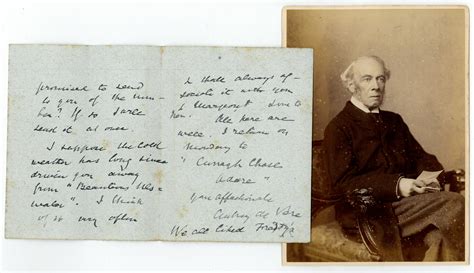 promised to send
to you of the num-
ber? If so I will
send it at once.
I suppose the cold
weather has long since
driven you away
from "Beauteous Ulls-
water". I think
of it very often
I shall always as-
sociate it with you
& Margaret. Love to
her. All here are
well. I return on
Monday to
"Curragh Chase
Adare"
Your affectionate
Aubrey de Vere
We all liked